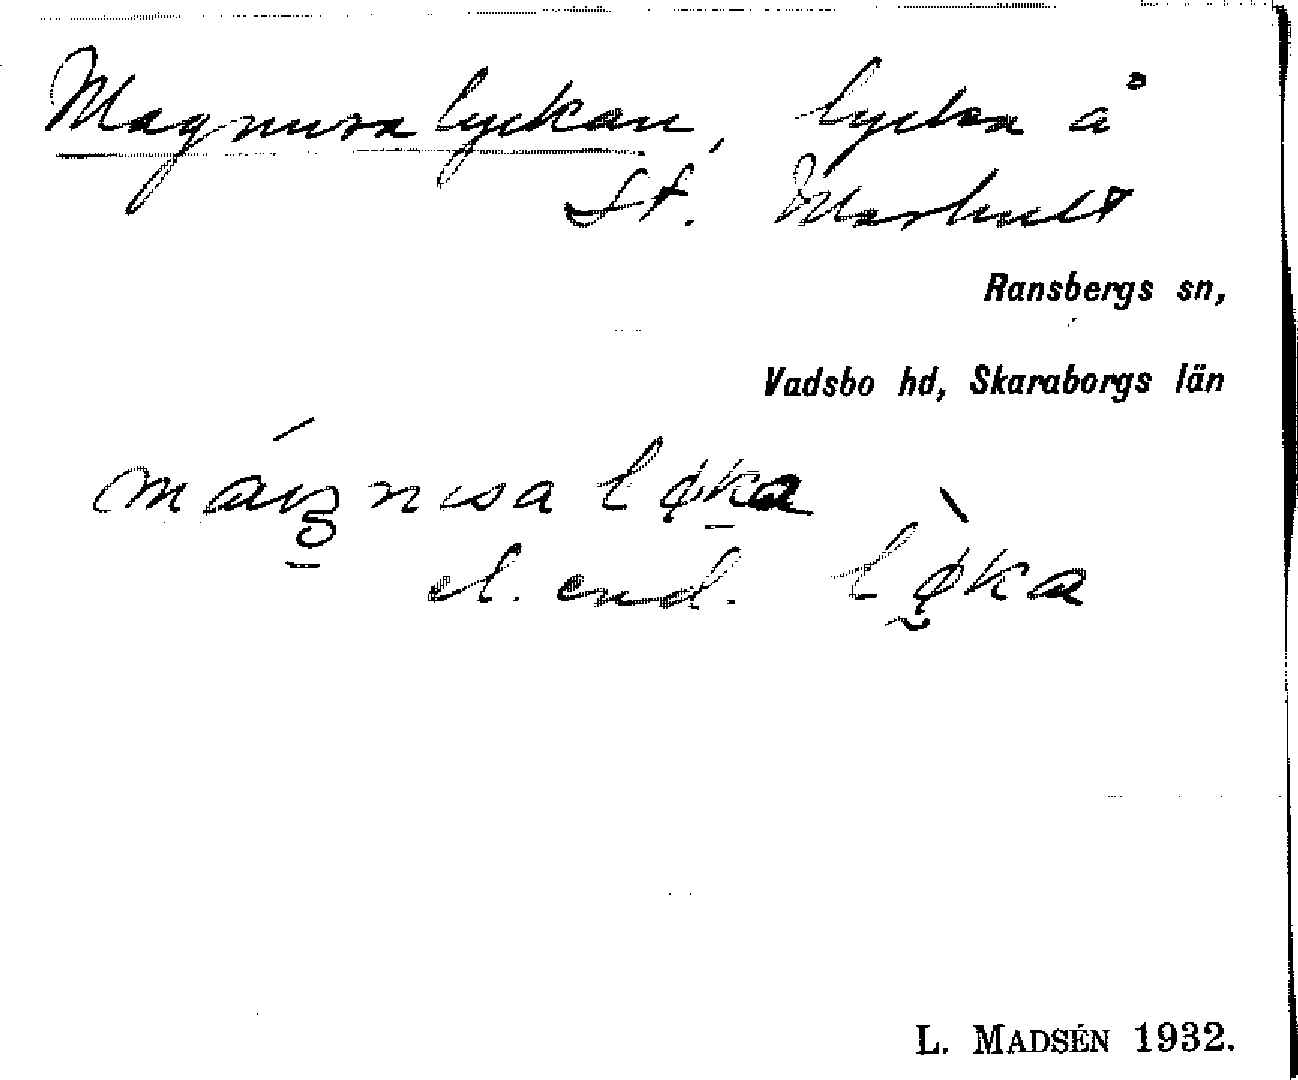 Magnusalyckan, lycka å
St. Marhult
Ransbergs sn,
Vadsbo hd, Skaraborgs län
el. end. løka
L. MADSÉN 1932.